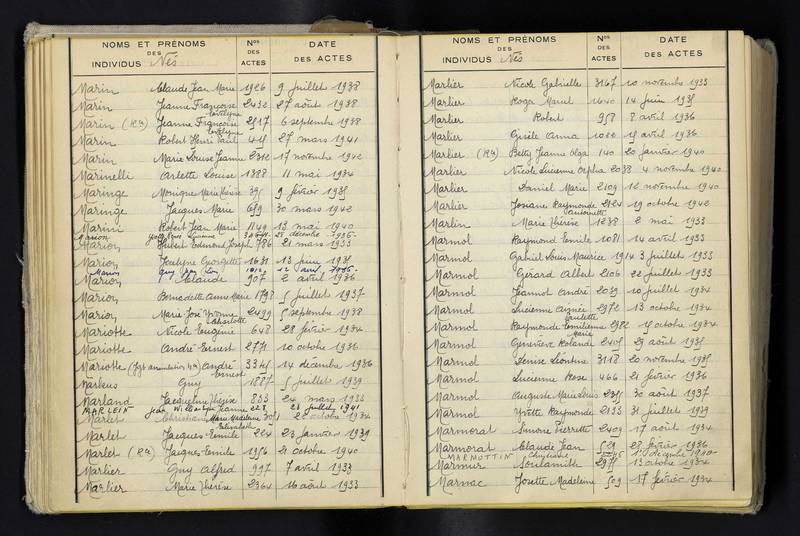 NOMS ET PRÉNOMS DES INDIVIDUS Nés
Nos DES ACTES
DATE DES ACTES
Marin Claude Jean Marie 1926 9 juillet 1938
Marin Jeanne Françoise 2430 27 août 1938
Marin (Ra) Jeanne Françoise Evelyne 2517 6 septembre 1938
Marin Robert Henri Paul 27 mars 1941
Marin Marie Louise Jeanne 2312 17 novembre 1942
Marinelli Arlette Louise 1388 11 mai 1934
Maringe Monique Marie Thérèse 9 février 1935
Maringe Jacques Marie 659 30 mars 1942
Marini Robert Jean Marie 1149 13 mai 1940
Marion Yvonne décembre
Marion Hubert Edmond Joseph 786 21 mars 1933
Marion Jocelyne Georgette 1631 13 juin 1935
Marion Guy 12 avril
Marion Claude 907 2 avril 1936
Marion Bernadette Anne Marie 1798 5 juillet 1937
Marion Marie José Yvonne 2499 5 septembre 1938
Mariotte Nicole Eugénie Charlotte 648 28 février 1934
Mariotte André Ernest 2771 10 octobre 1936
Mariotte André Ernest 14 décembre 1936
Markus Guy 1887 5 juillet 1939
Marland Jacqueline Thérèse 833 24 mars 1933
MARLEIN Jeanne 23 juillet 1941
Marlet Christiane Marie Madeleine Elisabeth 22 octobre 1934
Marlet Jacques Emile 224 23 janvier 1939
Marlet (Ra) Jacques Emile 1356 21 octobre 1940
Marlier Guy Alfred 997 7 avril 1933
Marlier Marie Thérèse 2364 16 août 1933
NOMS ET PRÉNOMS DES INDIVIDUS Nés
Nos DES ACTES
DATE DES ACTES
Marlier Nicole Gabrielle 3167 10 novembre 1933
Marlier Roger Marcel 1640 14 juin 1935
Marlier Robert 958 8 avril 1936
Marlier Gisèle Anna 1020 15 avril 1936
Marlier (Ra) Betty Jeanne Olga 140 20 janvier 1940
Marlier Nicole Lucienne Orpha 2038 4 novembre 1940
Marlier Daniel Marie 2109 12 novembre 1940
Marlier Josiane Raymonde Antoinette 2124 19 octobre 1942
Marlin Marie Thérèse 1238 2 mai 1933
Marmol Raymond Emile 1081 14 avril 1933
Marmol Gabriel Louis Maurice 1914 3 juillet 1933
Marmol Gérard Albert 2106 22 juillet 1933
Marmol Jeannot André 2039 10 juillet 1934
Marmol Lucienne Aimée Paulette 2972 13 octobre 1934
Marmol Raymonde Emilienne Marie 2982 15 octobre 1934
Marmol Geneviève Rolande 2405 29 août 1935
Marmol Denise Léontine 3118 20 novembre 1935
Marmol Lucienne Rose 466 21 février 1936
Marmol Auguste Marie Louis 30 août 1937
Marmol Yvette Raymonde 2133 31 juillet 1939
Marmorat Simone Pierrette 2409 17 août 1934
Marmorat Claude Jean 529 28 février 1936
MARMOTTIN Christiane décembre
Marmur Soulamith 13 octobre 1934
Marnac Josette Madeleine 509 17 février 1934